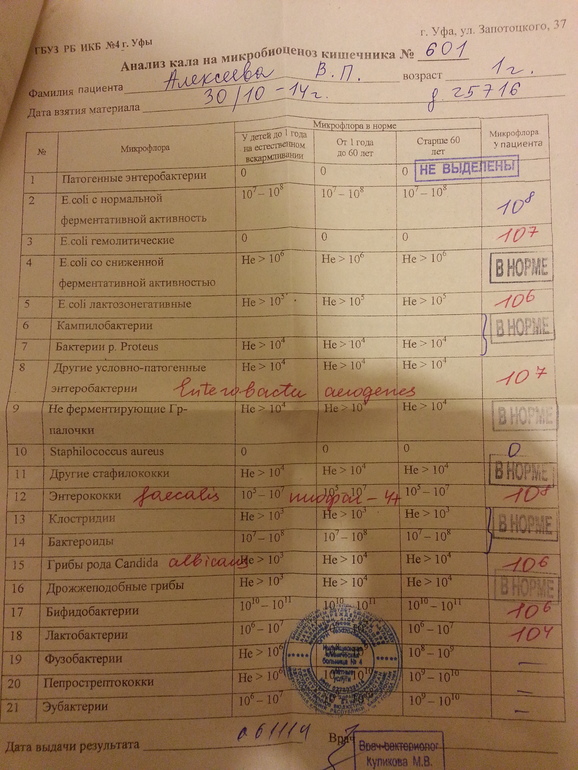 г. Уфа, ул. Запотоцкого, 37
ГБУЗ РБ ИКБ №4 г. Уфы
Анализ кала на микробиоценоз кишечника № 601
Фамилия пациента Алексеева В.П. возраст 1г.
Дата взятия материала 30/10-14г. д 25716
№ Микрофлора Микрофлора в норме Микрофлора у пациента
У детей до 1 года на естественном вскармливании От 1 года до 60 лет Старше 60 лет
1 Патогенные энтеробактерии 0 0 0 НЕ ВЫДЕЛЕНЫ
2 E.coli с нормальной ферментативной активность 10⁷ – 10⁸ 10⁷ – 10⁸ 10⁷ – 10⁸ 10⁸
3 E.coli гемолитические 0 0 0 10⁷
4 E.coli со сниженной ферментативной активностью Не > 10⁶ Не > 10⁶ Не > 10⁶ В НОРМЕ
5 E.coli лактозонегативные Не > 10⁵ Не > 10⁵ Не > 10⁵ 10⁶
6 Кампилобактерии В НОРМЕ
7 Бактерии р. Proteus Не > 10⁴ Не > 10⁴ Не > 10⁴
8 Другие условно-патогенные энтеробактерии Enterobacter aerogenes Не > 10⁴ Не > 10⁴ Не > 10⁴ 10⁷
9 Не ферментирующие Гр- палочки Не > 10⁴ Не > 10⁴ Не > 10⁴ В НОРМЕ
10 Staphilococcus aureus 0 0 0 0
11 Другие стафилококки Не > 10⁴ Не > 10⁴ Не > 10⁴ В НОРМЕ
12 Энтерококки faecalis 10⁵ – 10⁷ 10⁵ – 10⁷ 10⁸
13 Клостридии Не > 10³ Не > 10³ Не > 10³ В НОРМЕ
14 Бактероиды 10⁷ – 10⁸ 10⁷ – 10⁸ 10⁷ – 10⁸
15 Грибы рода Candida albicans Не > 10³ Не > 10⁴ Не > 10⁴ 10⁶
16 Дрожжеподобные грибы Не > 10³ Не > 10⁴ Не > 10⁴ В НОРМЕ
17 Бифидобактерии 10¹⁰ – 10¹¹ 10¹⁰ – 10¹¹ 10¹⁰ – 10¹¹ 10⁶
18 Лактобактерии 10⁶ – 10⁷ 10⁶ – 10⁷ 10⁴
19 Фузобактерии Не > 10⁶ 10⁸ – 10⁹ –
20 Пепрострептококки 10⁹ – 10¹⁰ –
21 Эубактерии 10⁶ – 10⁷ 10⁹ – 10¹⁰ –
Дата выдачи результата 061114 Врач
Врач-бактериолог
Куликова М.В.